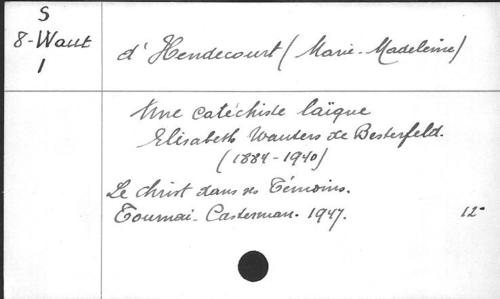 S
8-Waut
1
d'Hendecourt (Marie-Madeleine)
Une catéchiste laïque
Elisabeth Wauters de Besterfeld.
(1884-1940)
Le Christ dans ses Témoins.
Tournai- Casterman. 1947. 12°